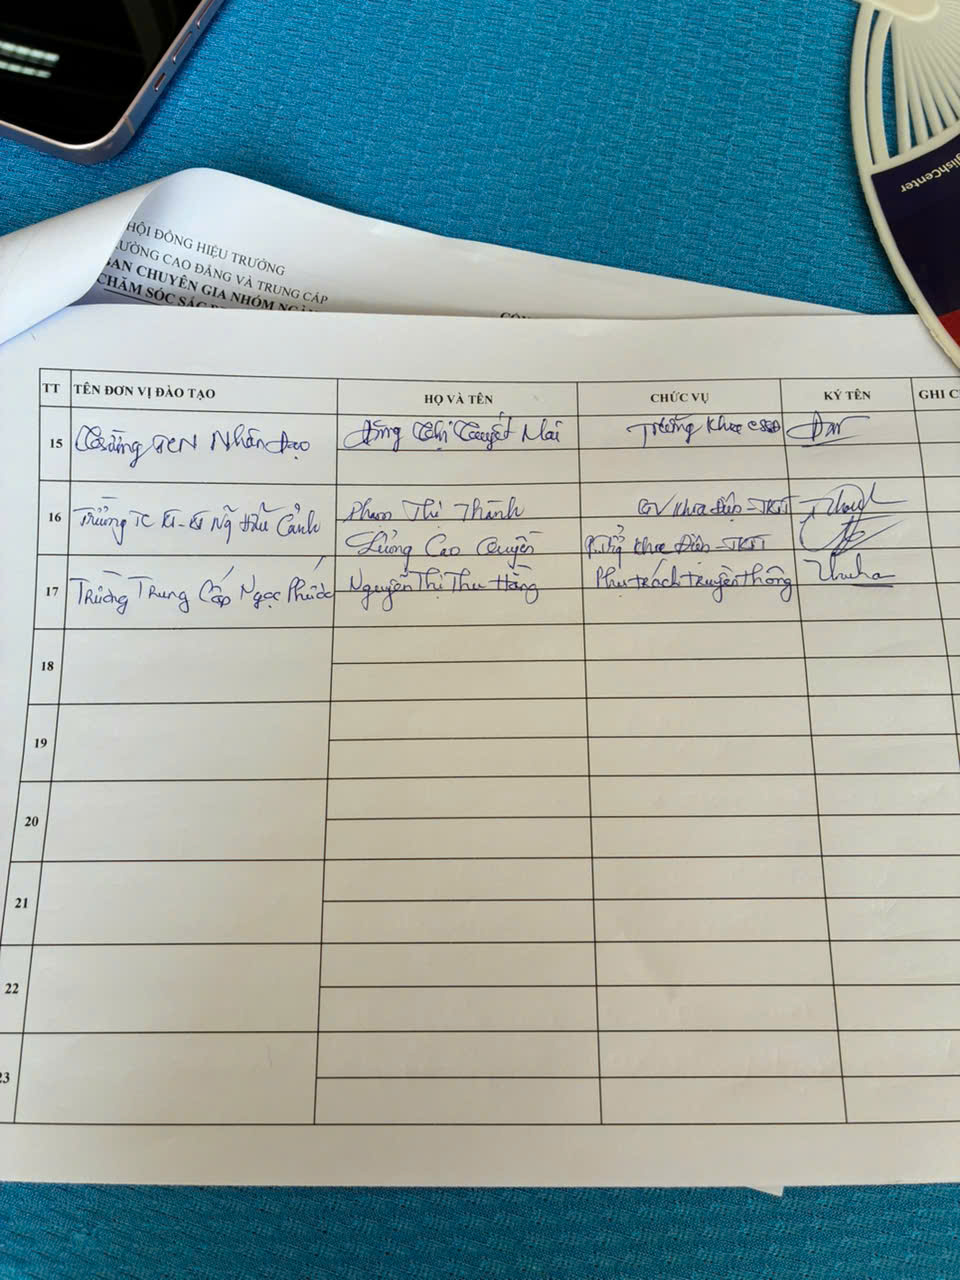 glishCenter
HỘI ĐỒNG HIỆU TRƯỞNG
ƯỜNG CAO ĐẲNG VÀ TRUNG CẤP
BAN CHUYÊN GIA NHÓM NGÀN
CHĂM SÓC SẮC
TT TÊN ĐƠN VỊ ĐÀO TẠO HỌ VÀ TÊN CHỨC VỤ KÝ TÊN GHI C
15 Trường TCN Nhân Đạo Đặng Thị Tuyết Mai Trưởng Khoa CSSĐ
16 Trường TC KT-KT Ng Hữu Cảnh Phạm Thị Thành GV Khoa Điện -
Lương Cao Quyền Khoa Điện -
17 Trường Trung Cấp Ngọc Phước Nguyễn Thị Thu Hằng Phụ trách truyền thông
18
19
20
21
22
23